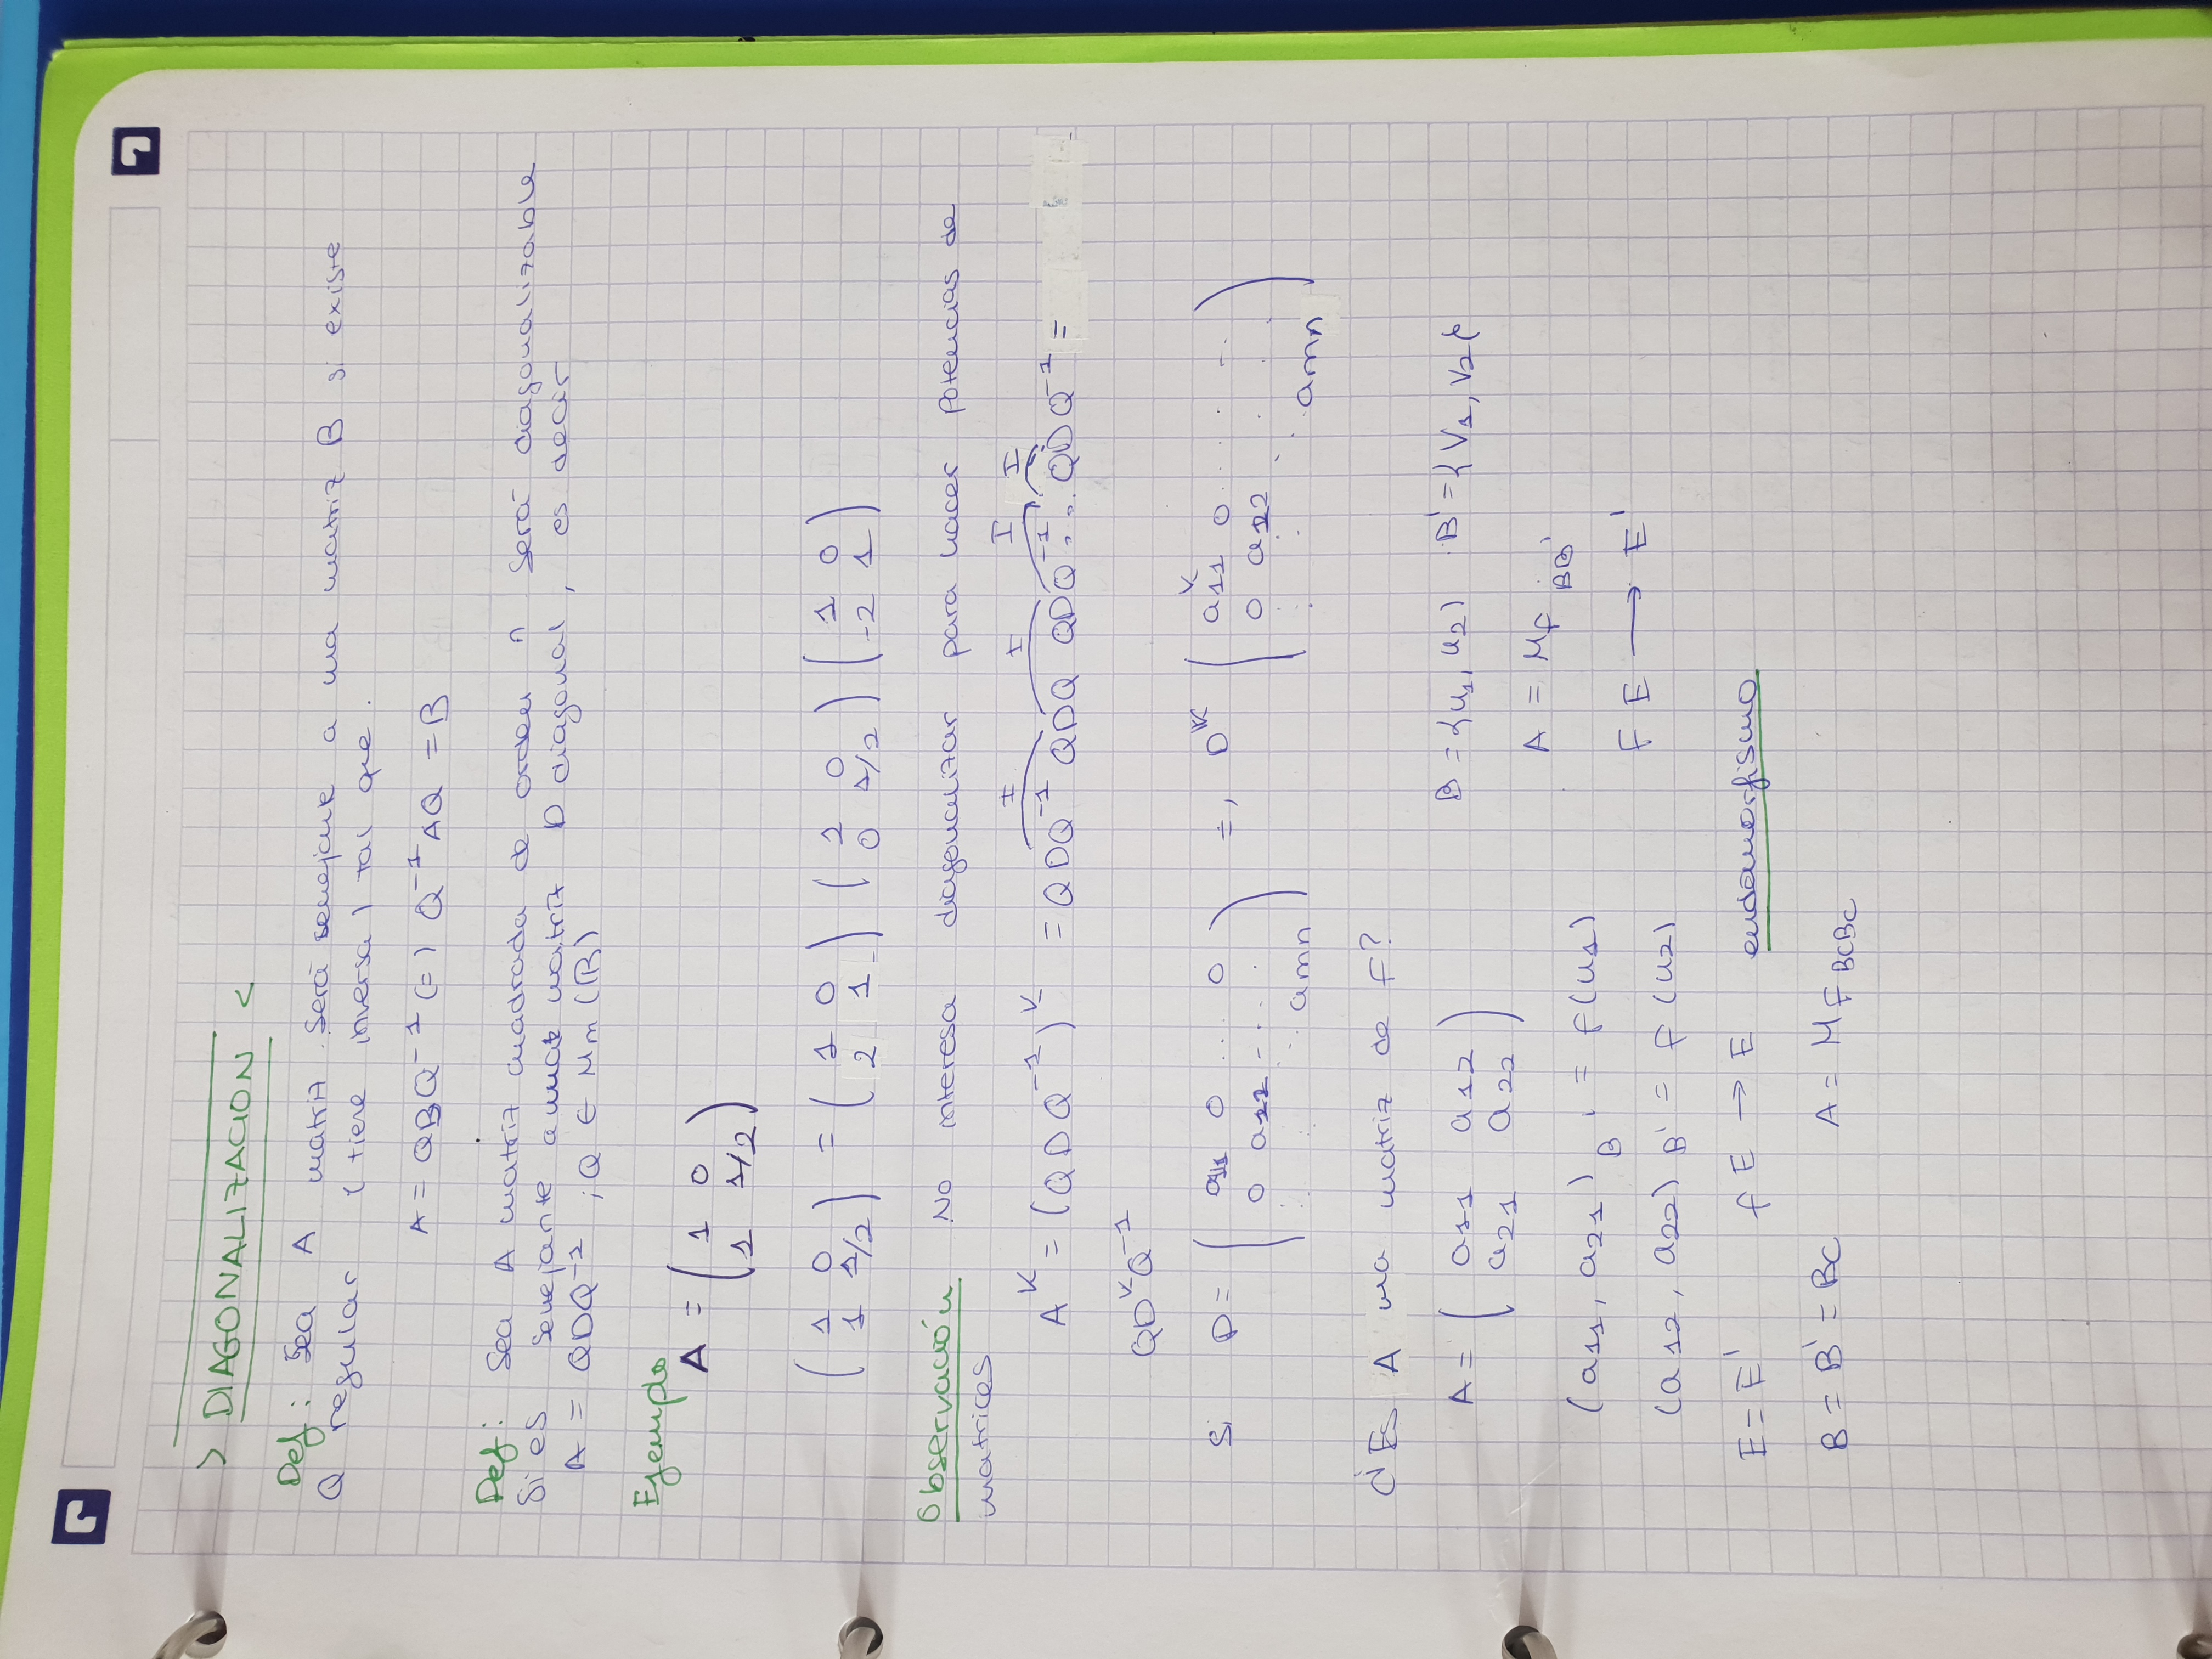 > DIAGONALIZACION <
Def: Sea A matriz será semejante a una matriz B si existe
Q regular (tiene inversa) tal que.
A = QBQ⁻¹ (=) Q⁻¹AQ = B
Def: Sea A matriz cuadrada de orden n será diagonalizable
Si es semejante a una matriz D diagonal, es decir
A = QDQ⁻¹ ; Q ∈ Mn (R)
Ejemplo
A = ( 1 0
1 1/2 )
( 1 0 1 1/2 ) = ( 1 0 2 1 ) ( 1 0 0 1/2 ) ( 1 0 -2 1 )
Observación No interesa diagonalizar para hacer potencias de
matrices
I I I I
Aᴷ = (QDQ⁻¹)ᴷ = QDQ⁻¹ QDQ QDQ⁻¹... QDQ⁻¹ =
QDᴷQ⁻¹
Si D = ( a11 0 ... 0 0 a22 ... amn ) =, Dᴷ ( a11ᴷ 0 ... 0 a22 ... amn )
¿Es A una matriz de F?
B = {u1, u2} B' = {V1, V2}
A = ( a11 a12
a21 a22 )
A = MF BB'
(a11, a21) B' = f(u1)
F E → E'
(a12, a22) B' = f(u2)
E = E' f E → E endomorfismo
B = B' = Bc A = MF BcBc